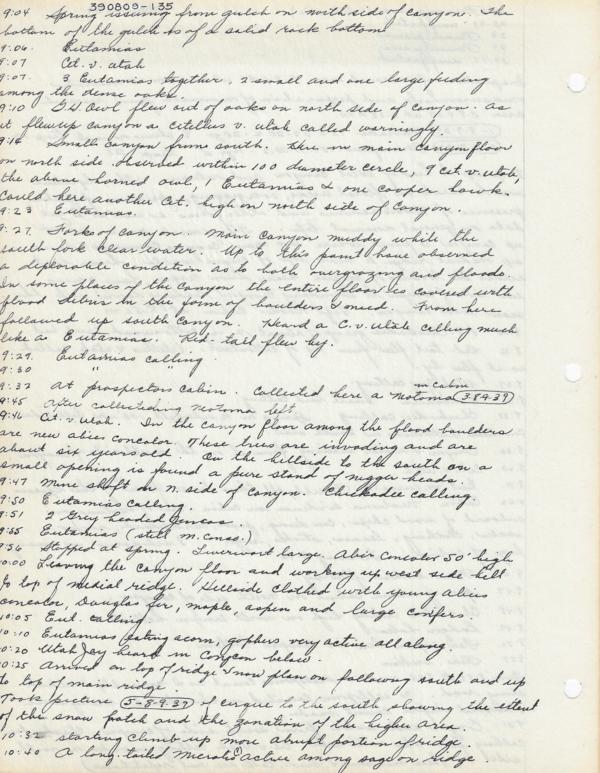 390809-135
9:04 Spring issuing from gulch on north side of canyon. The
bottom of the gulch is of a solid rock bottom
9:06. Eutamias
9:07 Cit. v. utah
9:07. 3 Eutamias together, 2 small and one large feeding
among the dense oaks.
9:10 G.H. Owl flew out of oaks on north side of canyon. as
it flew up canyon a citellus v. utah called warningly.
9:14 Small canyon from south. Here in main canyon floor
on north side observed within 100 diameter circle, 9 cit. v. utah,
the above horned owl, 1 Eutamias & one cooper hawk.
Could hear another Cit. high on north side of Canyon.
9:23 Eutamias.
9:27. Forks of canyon. Main canyon muddy while the
south fork clear water. Up to this point have observed
a deplorable condition as to both overgrazing and floods.
In some places of the canyon the entire floor is covered with
flood debris in the form of boulders & mud. From here
followed up south canyon. Heard a C. v. Utah calling much
like a Eutamias. Red-tail flew by.
9:29. Eutamias calling.
9:30 " "
9:32 at prospectors cabin. Collected here a Neotoma in cabin (3-8-9-39)
9:45 After collecting Neotoma left
9:46 Cit. v. utah. In the canyon floor among the flood boulders
are new abies concolor. These trees are invading and are
about six years old. On the hillside to the south on a
small opening is found a pure stand of nigger heads.
9:47 Mine shaft on n. side of canyon. Chickadee calling.
9:50 Eutamias calling.
9:51 2 Grey headed Juncos.
9:55 Eutamias (still m. conss.)
9:56 Stopped at spring. Liverwort large. Abies Concolor 50' high
10:00 Leaving the canyon floor and working up west side hill
to top of medial ridge. Hillside clothed with young abies
concolor, Douglas fir, maple, aspen and large conifers.
10:05 Eut. calling.
10:10 Eutamias eating acorn, gophers very active all along.
10:20 Utah Jay heard in Canyon below.
10:25 Arrived on top of ridge & now plan on following south and up
to top of main ridge.
Took picture (5-8-9-39) of cirque to the south showing the extent
of the snow patch and the zonation of the higher area.
10:32 starting climb up more abrupt portion of ridge.
10:40 A long tailed Microtis (?) active among sage on ridge.